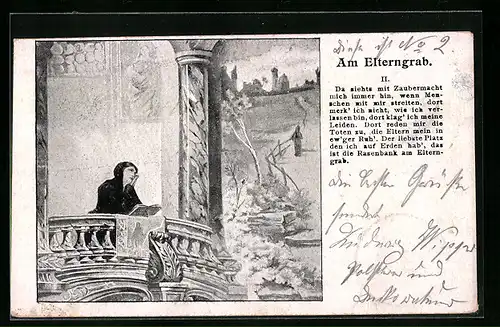 Diese ist No 2.
Am Elterngrab.
II.
Da ziehts mit Zaubermacht
mich immer hin, wenn Men-
schen mit mir streiten, dort
merk' ich nicht, wie ich ver-
lassen bin, dort klag' ich meine
Leiden. Dort reden mir die
Toten zu, die Eltern mein in
ew'ger Ruh'. Der liebste Platz
den ich auf Erden hab', das
ist die Rasenbank am Eltern-
grab.
Die besten Grüße
sendet
und